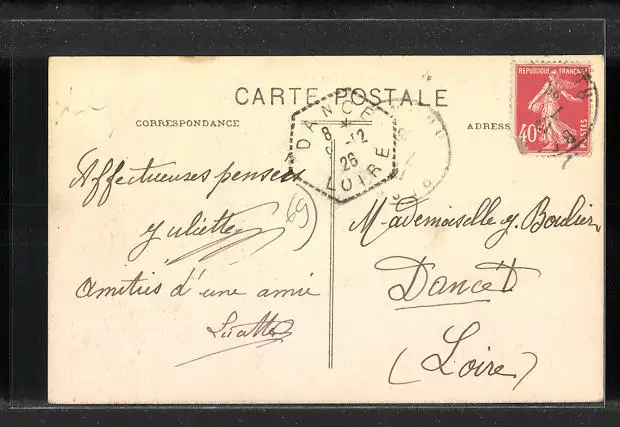 CARTE POSTALE
CORRESPONDANCE
ADRESSE
REPUBLIQUE FRANCAISE
40c
POSTES
DANCE
8 -12
26
LOIRE
69
Affectueuses pensees
Juliette
amitiés d'une amie
Mademoiselle J. Boulier
Dancé
(Loire)